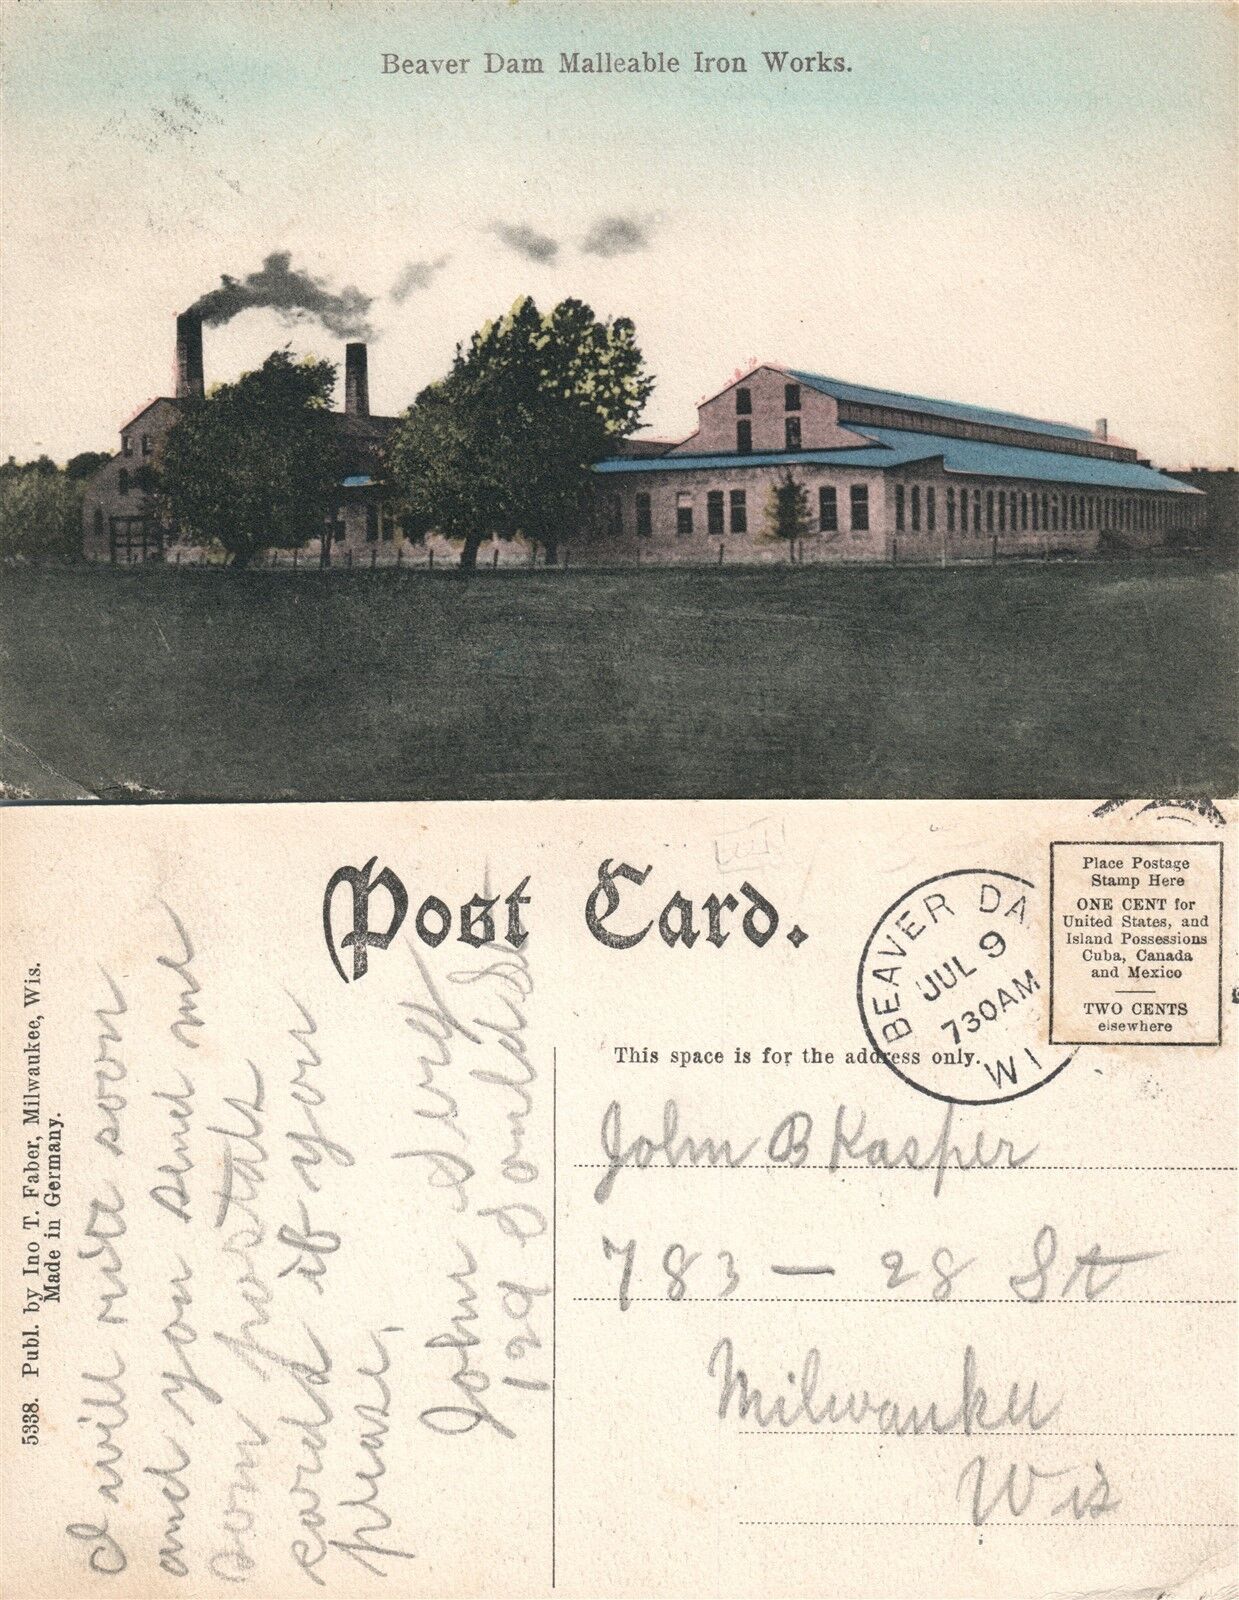 Beaver Dam Malleable Iron Works.
Post Card.
BEAVER DA
JUL 9
730AM
WI
Place Postage
Stamp Here
ONE CENT for
United States, and
Island Possessions
Cuba, Canada
and Mexico
TWO CENTS
elsewhere
This space is for the address only.
John B Kasper
783 — 28 St
Milwaukee
Wis
5338. Publ. by Ino T. Faber, Milwaukee, Wis.
Made in Germany.
I will rite soon
and you send me
som postals
cards if you
please,
John
129 St